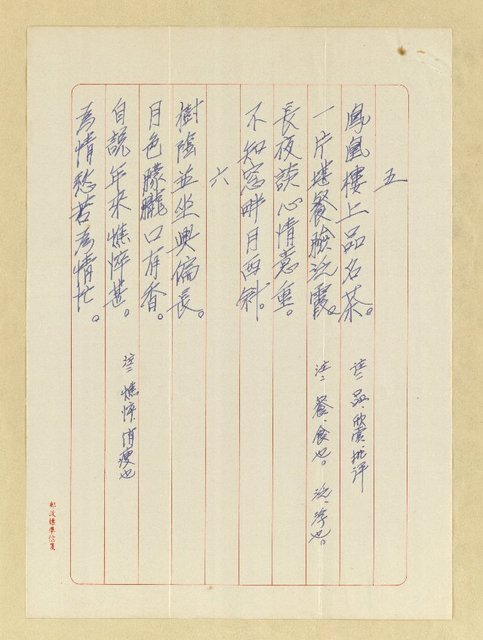 五
鳳凰樓上品名茶。 註：品、欣賞、批评
一片堪餐臉泛霞。 注：餐、食也。 泛、浮也。
長夜談心情意重。
不知窓畔月西斜。
六
樹陰並坐興偏長。
月色朦朧口有香。
自說年來憔悴甚。 注：憔悴、消瘦也
為情愁苦為情忙。